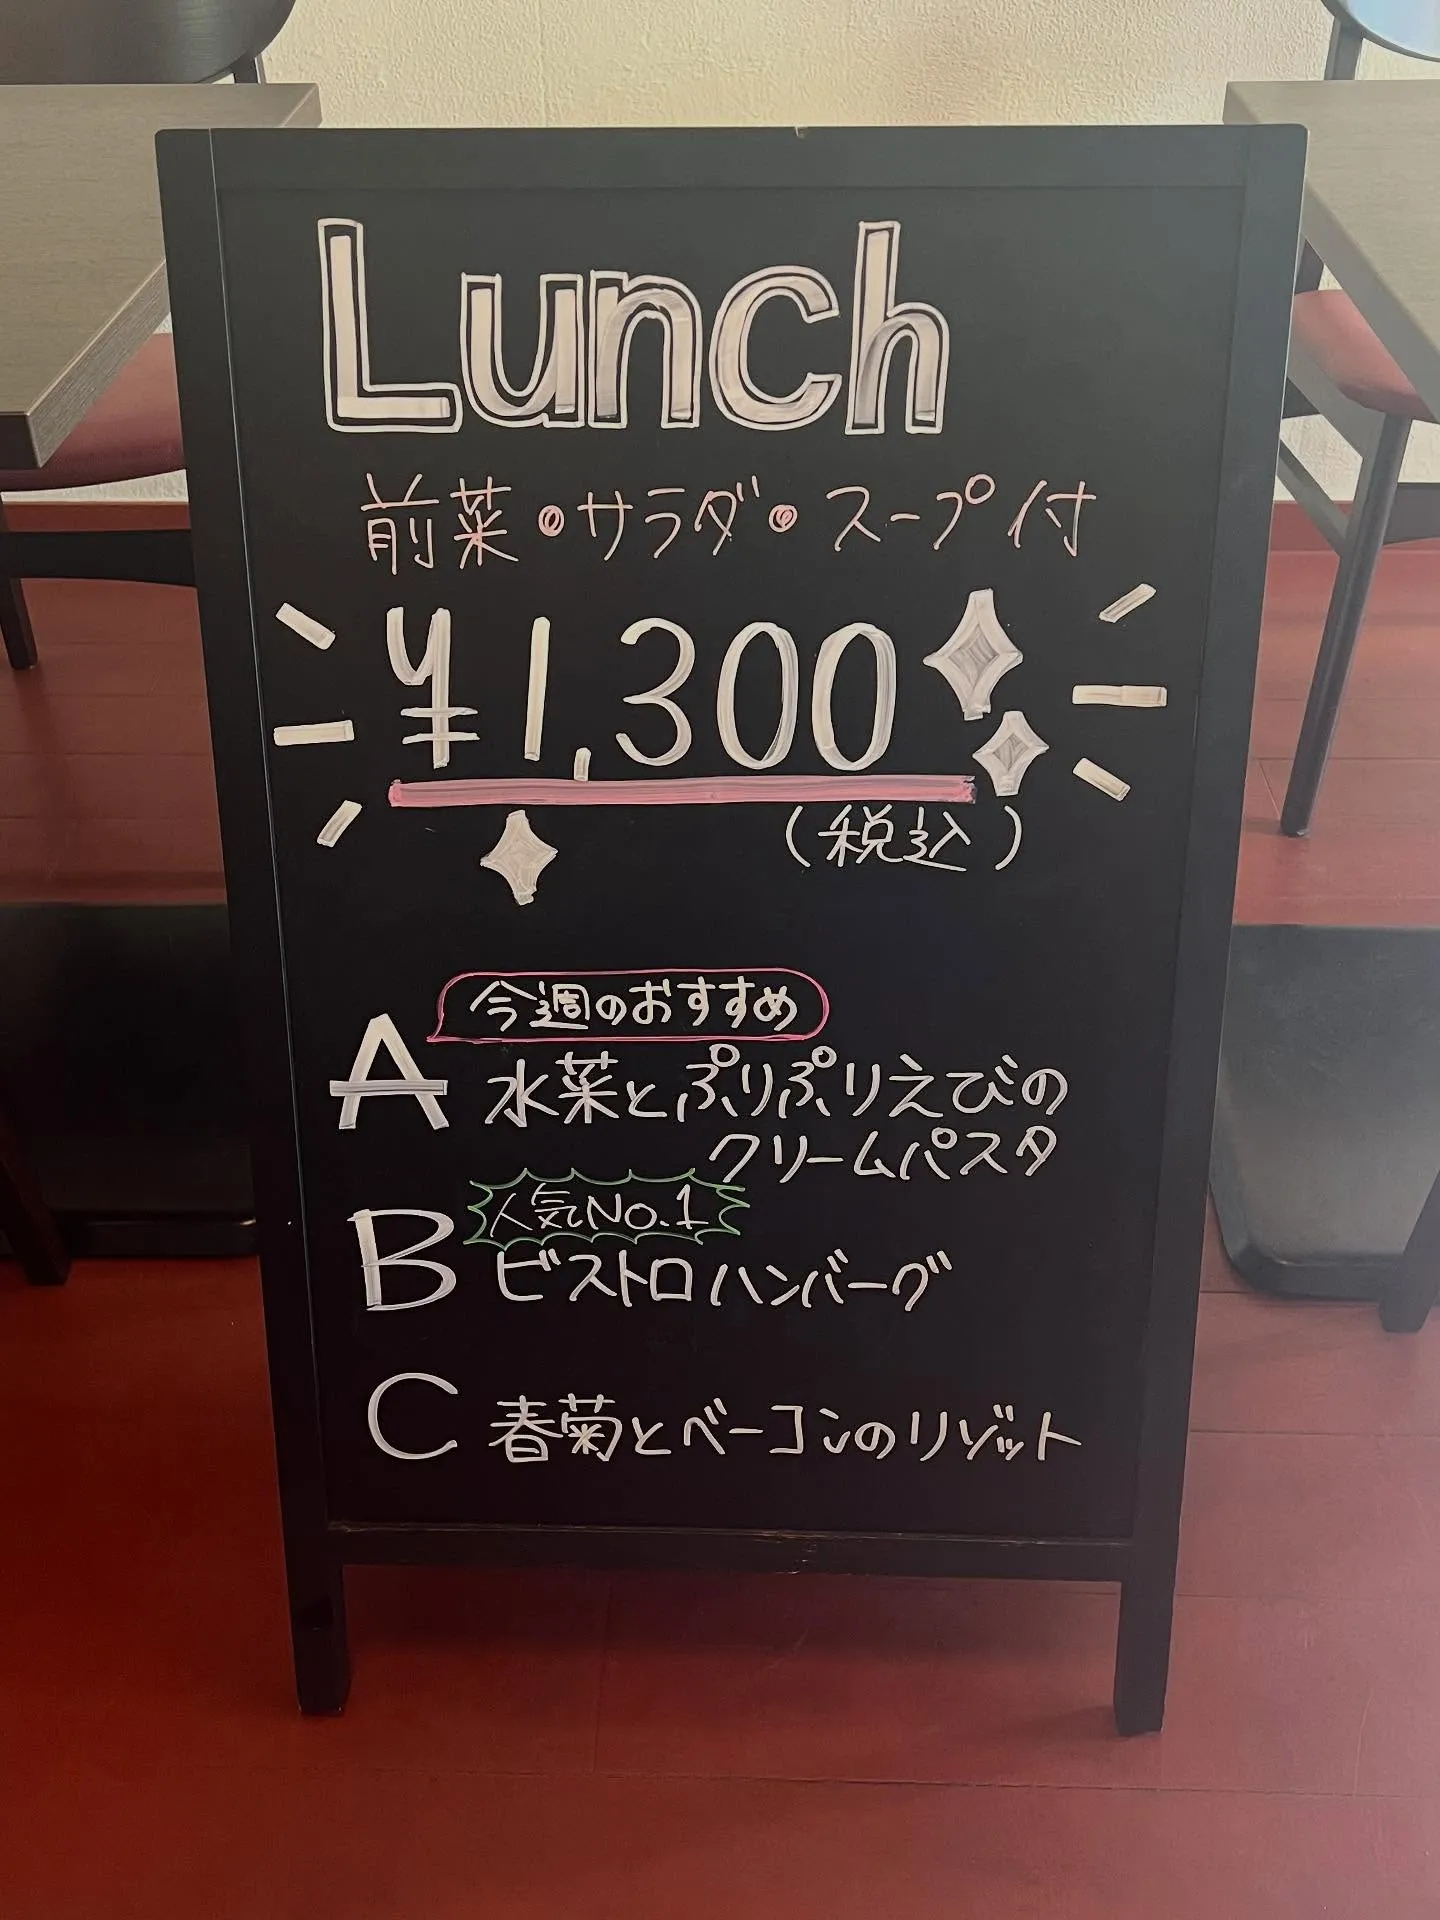 Lunch
前菜・サラダ・スープ付
¥1,300
(税込)
今週のおすすめ
A 水菜とぷりぷりえびの
クリームパスタ
人気No.1
B ビストロハンバーグ
C 春菊とベーコンのリゾット